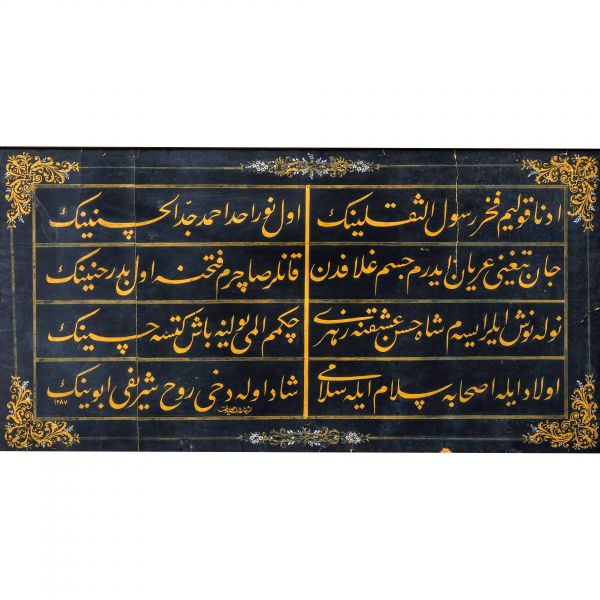 ادنا قولیم فخر رسول الثقلینك
اول نور احد احمد جد الحسنینك
جان تیغنی عریان ایدرم جسم غلافدن
قانلر صاچرم فتحنه اول بدر حنینك
نوله نوش ایلر ایسه م شاه حسن عشقنه زهری
چكمم المی یولینه باش كتسه حسینك
اولاد ایله اصحابه سلام ایله سلامی
شاد اوله دخی روح شریفی ابوینك
١٢٨٧